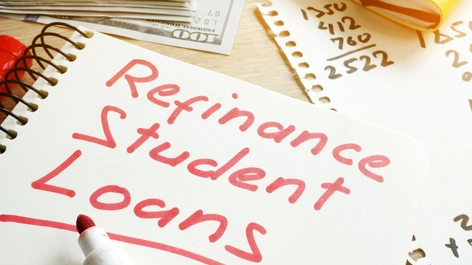 Refinance
Student
Loans
100
1350
412
760
2522